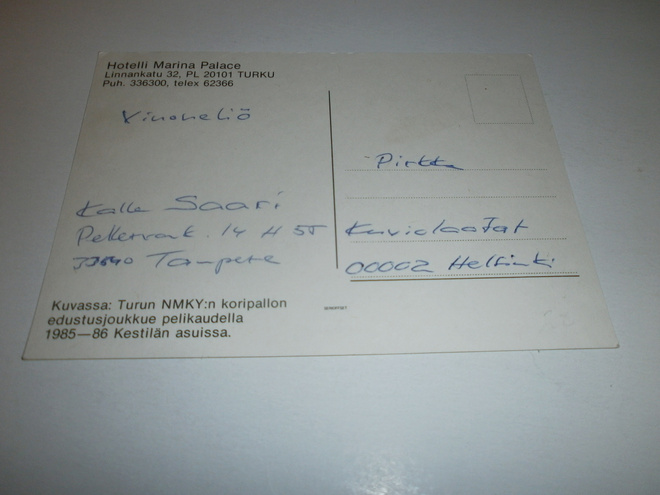 Hotelli Marina Palace
Linnankatu 32, PL 20101 TURKU
Puh. 336300, telex 62366
Vinoneliö
Kalle Saari
14 H 55
Tampere
Pirkka
Kuviolaatat
00002 Helsinki
Kuvassa: Turun NMKY:n koripallon
edustusjoukkue pelikaudella
1985—86 Kestilän asuissa.